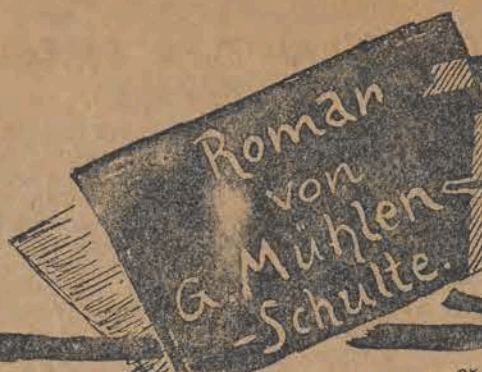 Roman
von
G. Mühlen-
-Schulte.